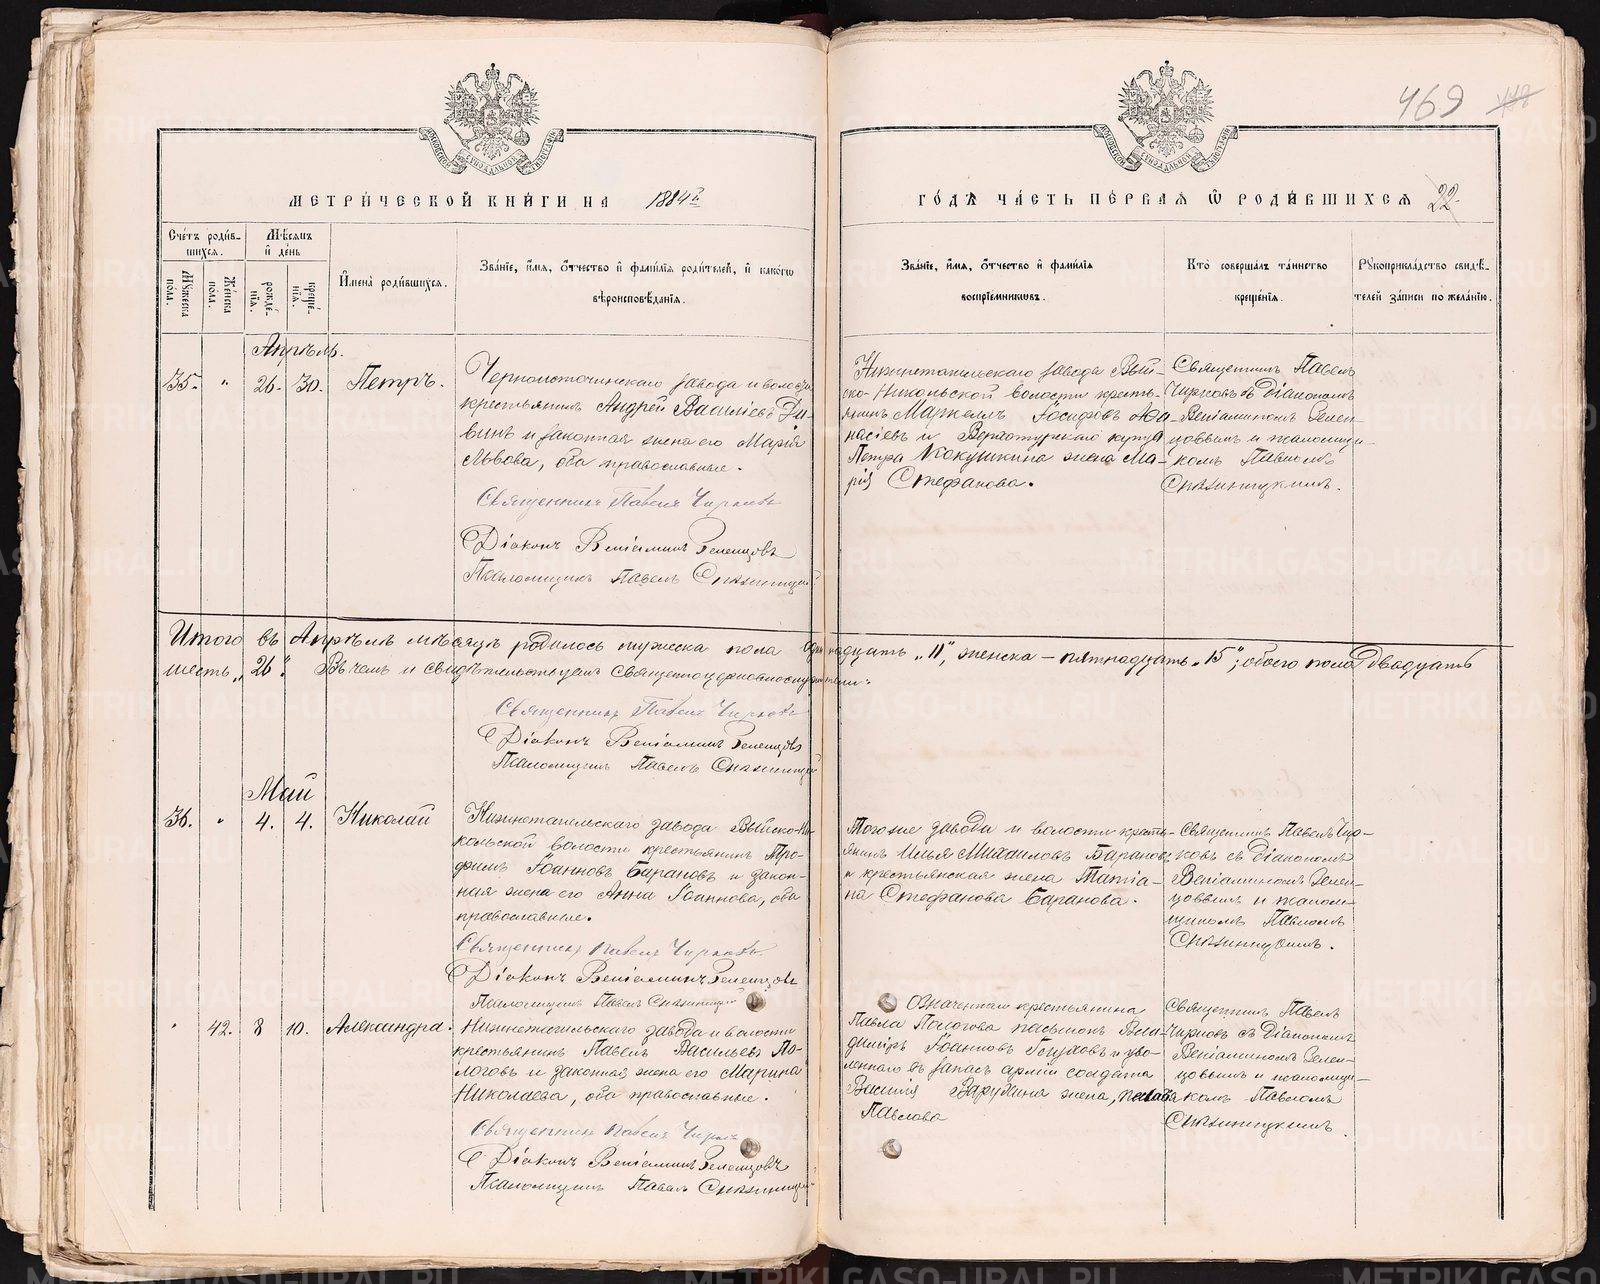 469 118
МЕТРИ́ЧЕСКОЙ КНИ́ГИ НА 1884 г.
ГО́ДЪ ЧА́СТЬ ПЕ́РВАѦ Ѡ РОДИ́ВШИХСѦ 22
Сче́тъ роди́в-
шихся.
Мѣ́сяцъ
и де́нь
Му́жеска
по́ла.
Же́нска
по́ла.
рожде́-
нїѧ.
креще́-
нїѧ.
И҆мена̀ роди́вшихсѧ.
Зва́нїе, и҆́мѧ, ѻ҆́тчество и҆ фами́лїѧ роди́телей, и҆ како́гѡ
вѣроисповѣ́данїѧ.
Зва́нїе, и҆́мѧ, ѻ҆́тчество и҆ фами́лїѧ
воспрїе́мникѡвъ.
Кто̀ соверша́лъ та́инство
креще́нїѧ.
Рꙋкоприкла́дство свидѣ́-
телей за́писи по жела́нїю.
Апрѣль.
35. " 26. 30. Петръ.
Черноисточинскаго завода и волости
крестьянинъ Андрей Василіевъ Ди-
винъ и законная жена его Марія
Львова, оба православные.
Священникъ Павелъ Чирковъ
Діаконъ Веніаминъ Зеленцовъ
Псаломщикъ Павелъ
Нижнетагильскаго завода Вый-
ско-Никольской волости кресть-
янинъ Маркеллъ Іосифовъ Афа-
насіевъ и Верхотурскаго купца
Петра Кокушкина жена Ма-
рія Стефанова.
Священникъ Павелъ
Чирковъ съ Діакономъ
Веніаминомъ Зелен-
цовымъ и псаломщи-
комъ Павломъ
Итого въ Апрѣлѣ мѣсяцѣ родилось мужеска пола одиннадцать „11“, женска — пятнадцать „15“; обоего пола двадцать
шесть „26“. Въ чемъ и свидѣтельствуемъ священноцерковнослужители:
Священникъ Павелъ Чирковъ
Діаконъ Веніаминъ Зеленцовъ
Псаломщикъ Павелъ
Май
36. " 4. 4. Николай
Нижнетагильскаго завода Выйско-Ни-
кольской волости крестьянинъ Тро-
фимъ Іоанновъ Барановъ и закон-
ная жена его Анна Іоаннова, оба
православные.
Священникъ Павелъ Чирковъ
Діаконъ Веніаминъ Зеленцовъ
Псаломщикъ Павелъ
Тогоже завода и волости кресть-
янинъ Илья Михаиловъ Барановъ
и крестьянская жена Татіа-
на Стефанова Баранова.
Священникъ Павелъ Чир-
ковъ съ Діакономъ
Веніаминомъ Зелен-
цовымъ и псалом-
щикомъ Павломъ
" 42. 8 10. Александра.
Нижнетагильскаго завода и волости
крестьянинъ Павелъ Васильевъ По-
логовъ и законная жена его Марина
Николаева, оба православные.
Священникъ Павелъ Чирковъ
Діаконъ Веніаминъ Зеленцовъ
Псаломщикъ Павелъ
Означеннаго крестьянина
Павла Пологова пасынокъ Вла-
димиръ Іоанновъ и уво-
леннаго въ запасъ арміи солдата
Василія жена,
Павлова
Священникъ Павелъ
Чирковъ съ Діакономъ
Веніаминомъ Зелен-
цовымъ и псаломщи-
комъ Павломъ
METRIKI.GASO-URAL.RU